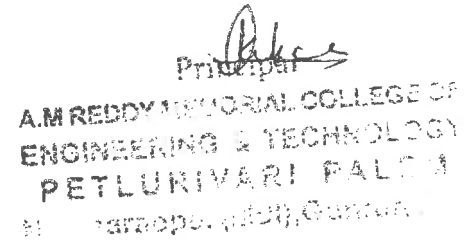 Principal
A.M REDDY MEMORIAL COLLEGE OF
ENGINEERING & TECHNOLOGY
PETLURIVARI PALEM